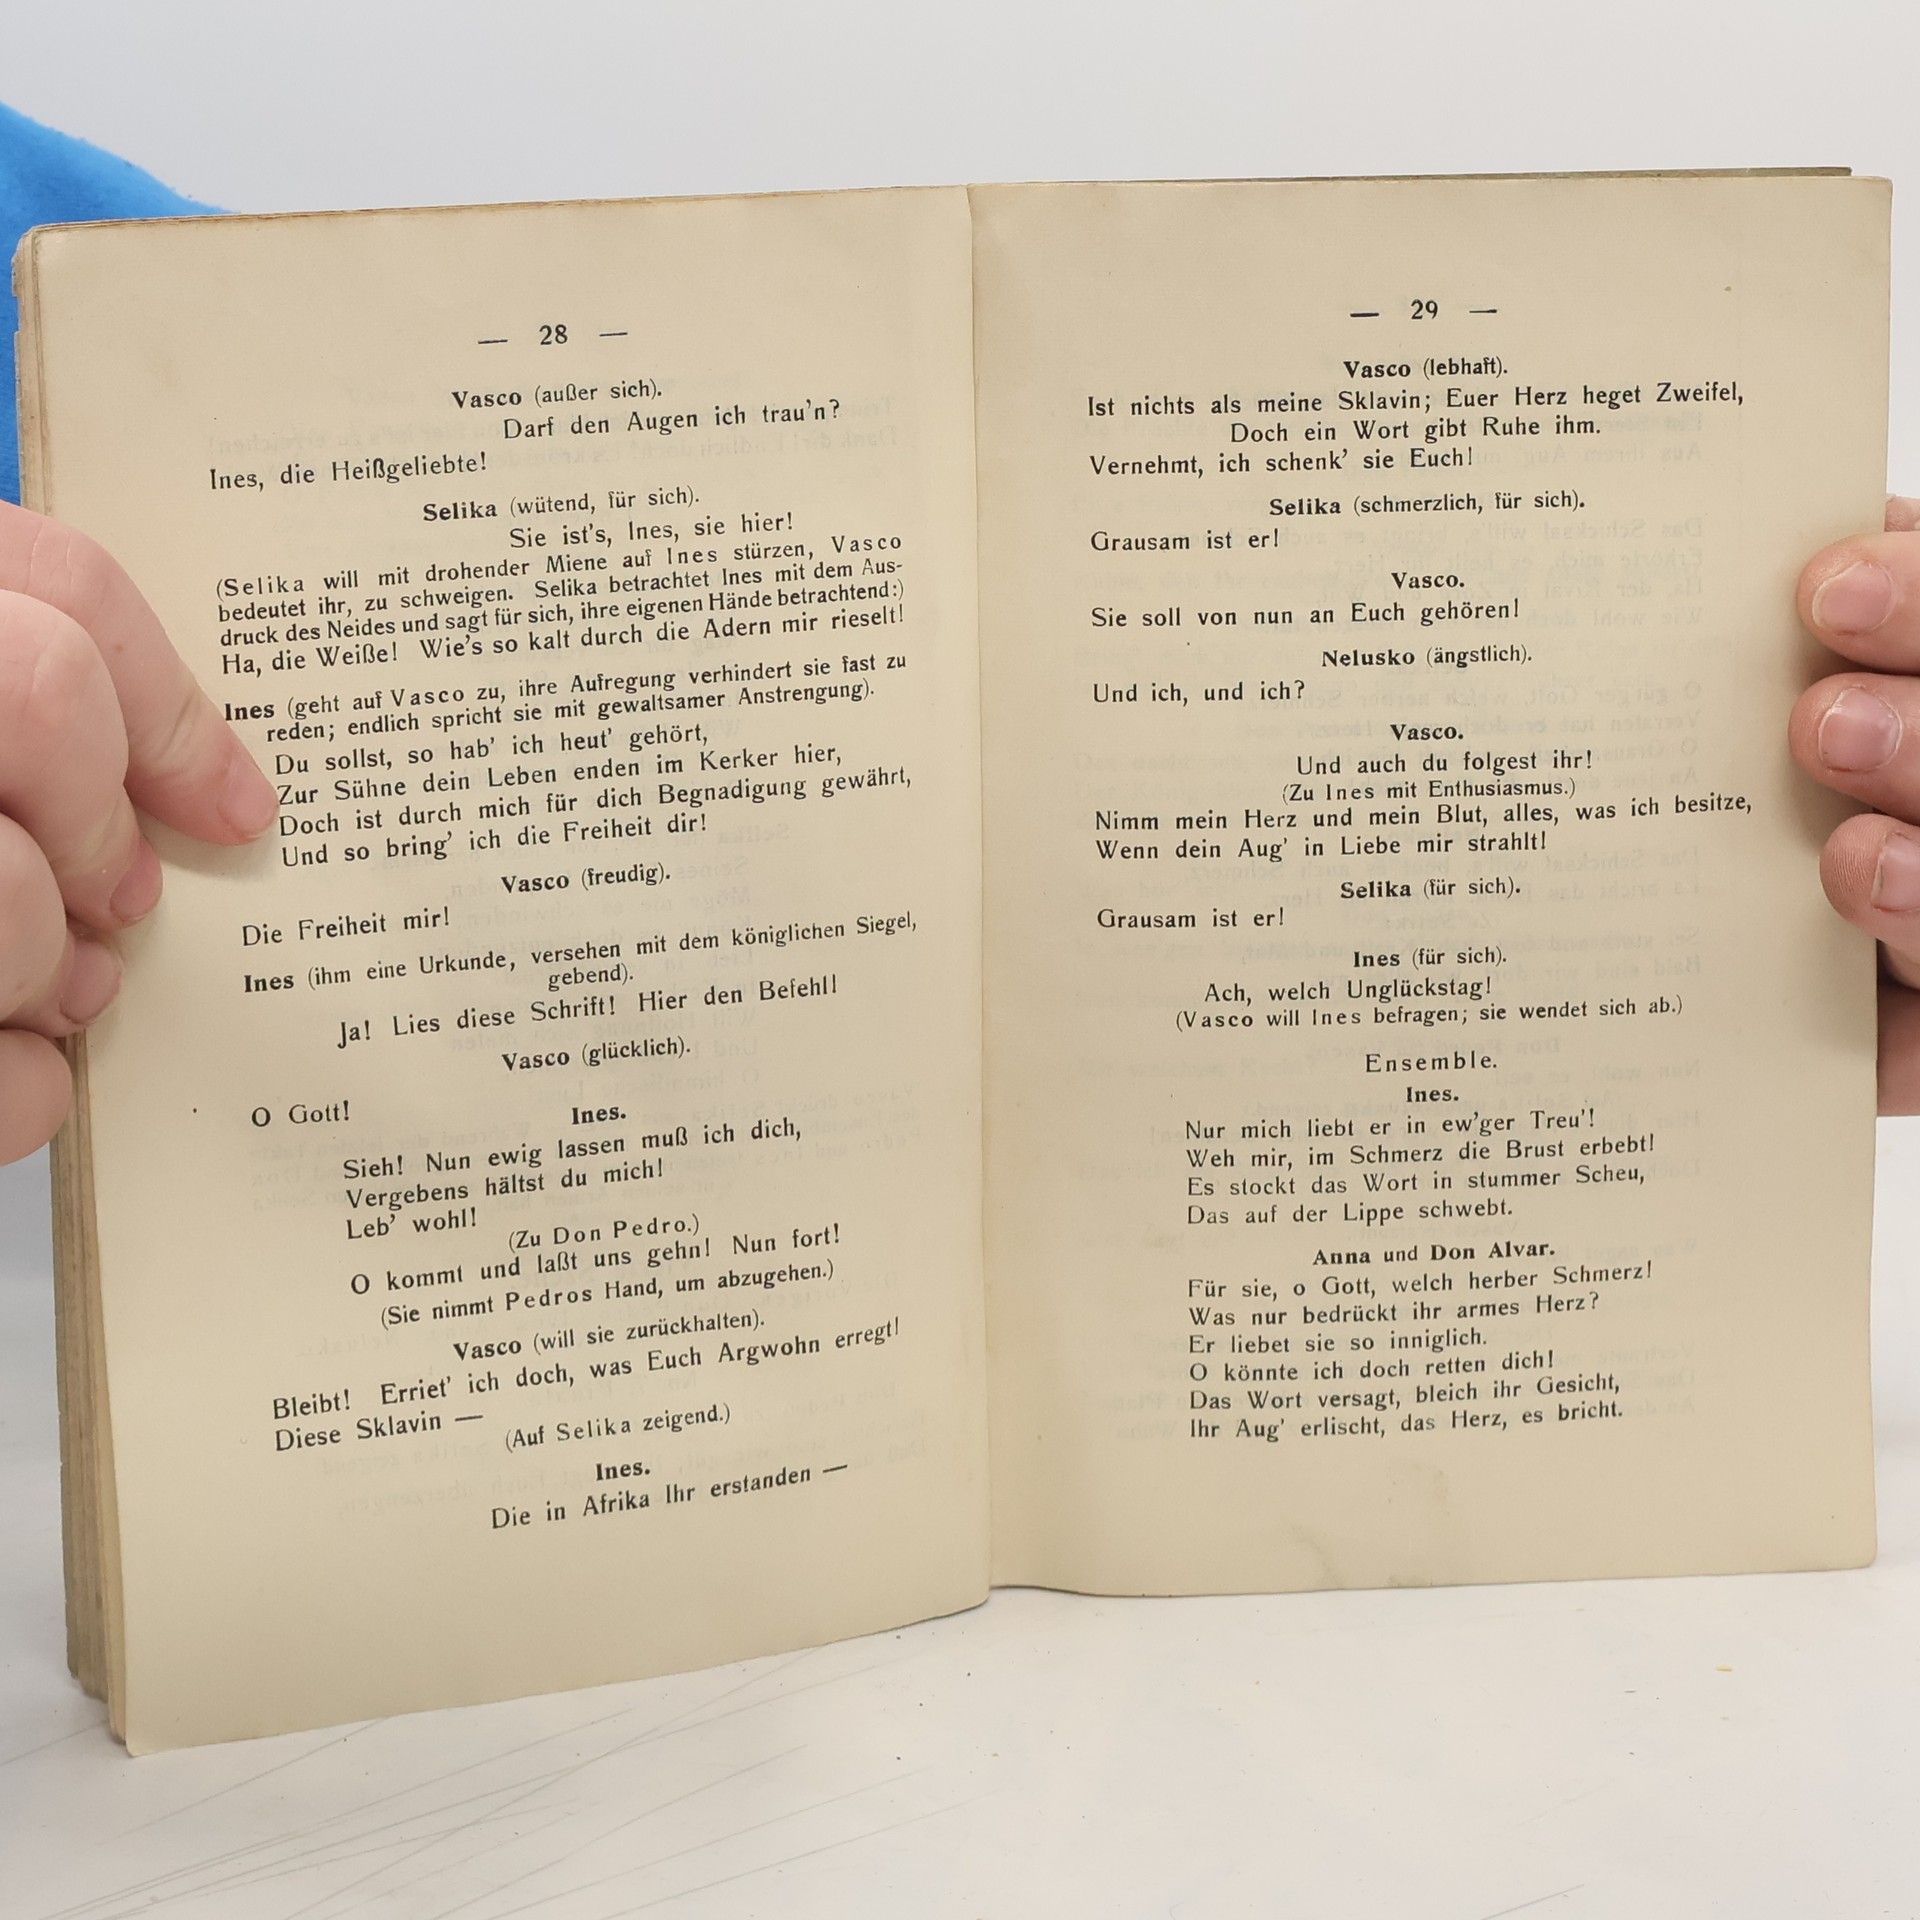 — 28 —
Vasco (außer sich).
Darf den Augen ich trau'n?
Ines, die Heißgeliebte!
Selika (wütend, für sich).
Sie ist's, Ines, sie hier!
(Selika will mit drohender Miene auf Ines stürzen, Vasco
bedeutet ihr, zu schweigen. Selika betrachtet Ines mit dem Aus-
druck des Neides und sagt für sich, ihre eigenen Hände betrachtend:)
Ha, die Weiße! Wie's so kalt durch die Adern mir rieselt!
Ines (geht auf Vasco zu, ihre Aufregung verhindert sie fast zu
reden; endlich spricht sie mit gewaltsamer Anstrengung).
Du sollst, so hab' ich heut' gehört,
Zur Sühne dein Leben enden im Kerker hier,
Doch ist durch mich für dich Begnadigung gewährt,
Und so bring' ich die Freiheit dir!
Vasco (freudig).
Die Freiheit mir!
Ines (ihm eine Urkunde, versehen mit dem königlichen Siegel,
gebend).
Ja! Lies diese Schrift! Hier den Befehl!
Vasco (glücklich).
O Gott!
Ines.
Sieh! Nun ewig lassen muß ich dich,
Vergebens hältst du mich!
Leb' wohl!
(Zu Don Pedro.)
O kommt und laßt uns gehn! Nun fort!
(Sie nimmt Pedros Hand, um abzugehen.)
Vasco (will sie zurückhalten).
Bleibt! Erriet' ich doch, was Euch Argwohn erregt!
Diese Sklavin —
(Auf Selika zeigend.)
Ines.
Die in Afrika Ihr erstanden —
— 29 —
Vasco (lebhaft).
Ist nichts als meine Sklavin; Euer Herz heget Zweifel,
Doch ein Wort gibt Ruhe ihm.
Vernehmt, ich schenk' sie Euch!
Selika (schmerzlich, für sich).
Grausam ist er!
Vasco.
Sie soll von nun an Euch gehören!
Nelusko (ängstlich).
Und ich, und ich?
Vasco.
Und auch du folgest ihr!
(Zu Ines mit Enthusiasmus.)
Nimm mein Herz und mein Blut, alles, was ich besitze,
Wenn dein Aug' in Liebe mir strahlt!
Selika (für sich).
Grausam ist er!
Ines (für sich).
Ach, welch Unglückstag!
(Vasco will Ines befragen; sie wendet sich ab.)
Ensemble.
Ines.
Nur mich liebt er in ew'ger Treu'!
Weh mir, im Schmerz die Brust erbebt!
Es stockt das Wort in stummer Scheu,
Das auf der Lippe schwebt.
Anna und Don Alvar.
Für sie, o Gott, welch herber Schmerz!
Was nur bedrückt ihr armes Herz?
Er liebet sie so inniglich.
O könnte ich doch retten dich!
Das Wort versagt, bleich ihr Gesicht,
Ihr Aug' erlischt, das Herz, es bricht.